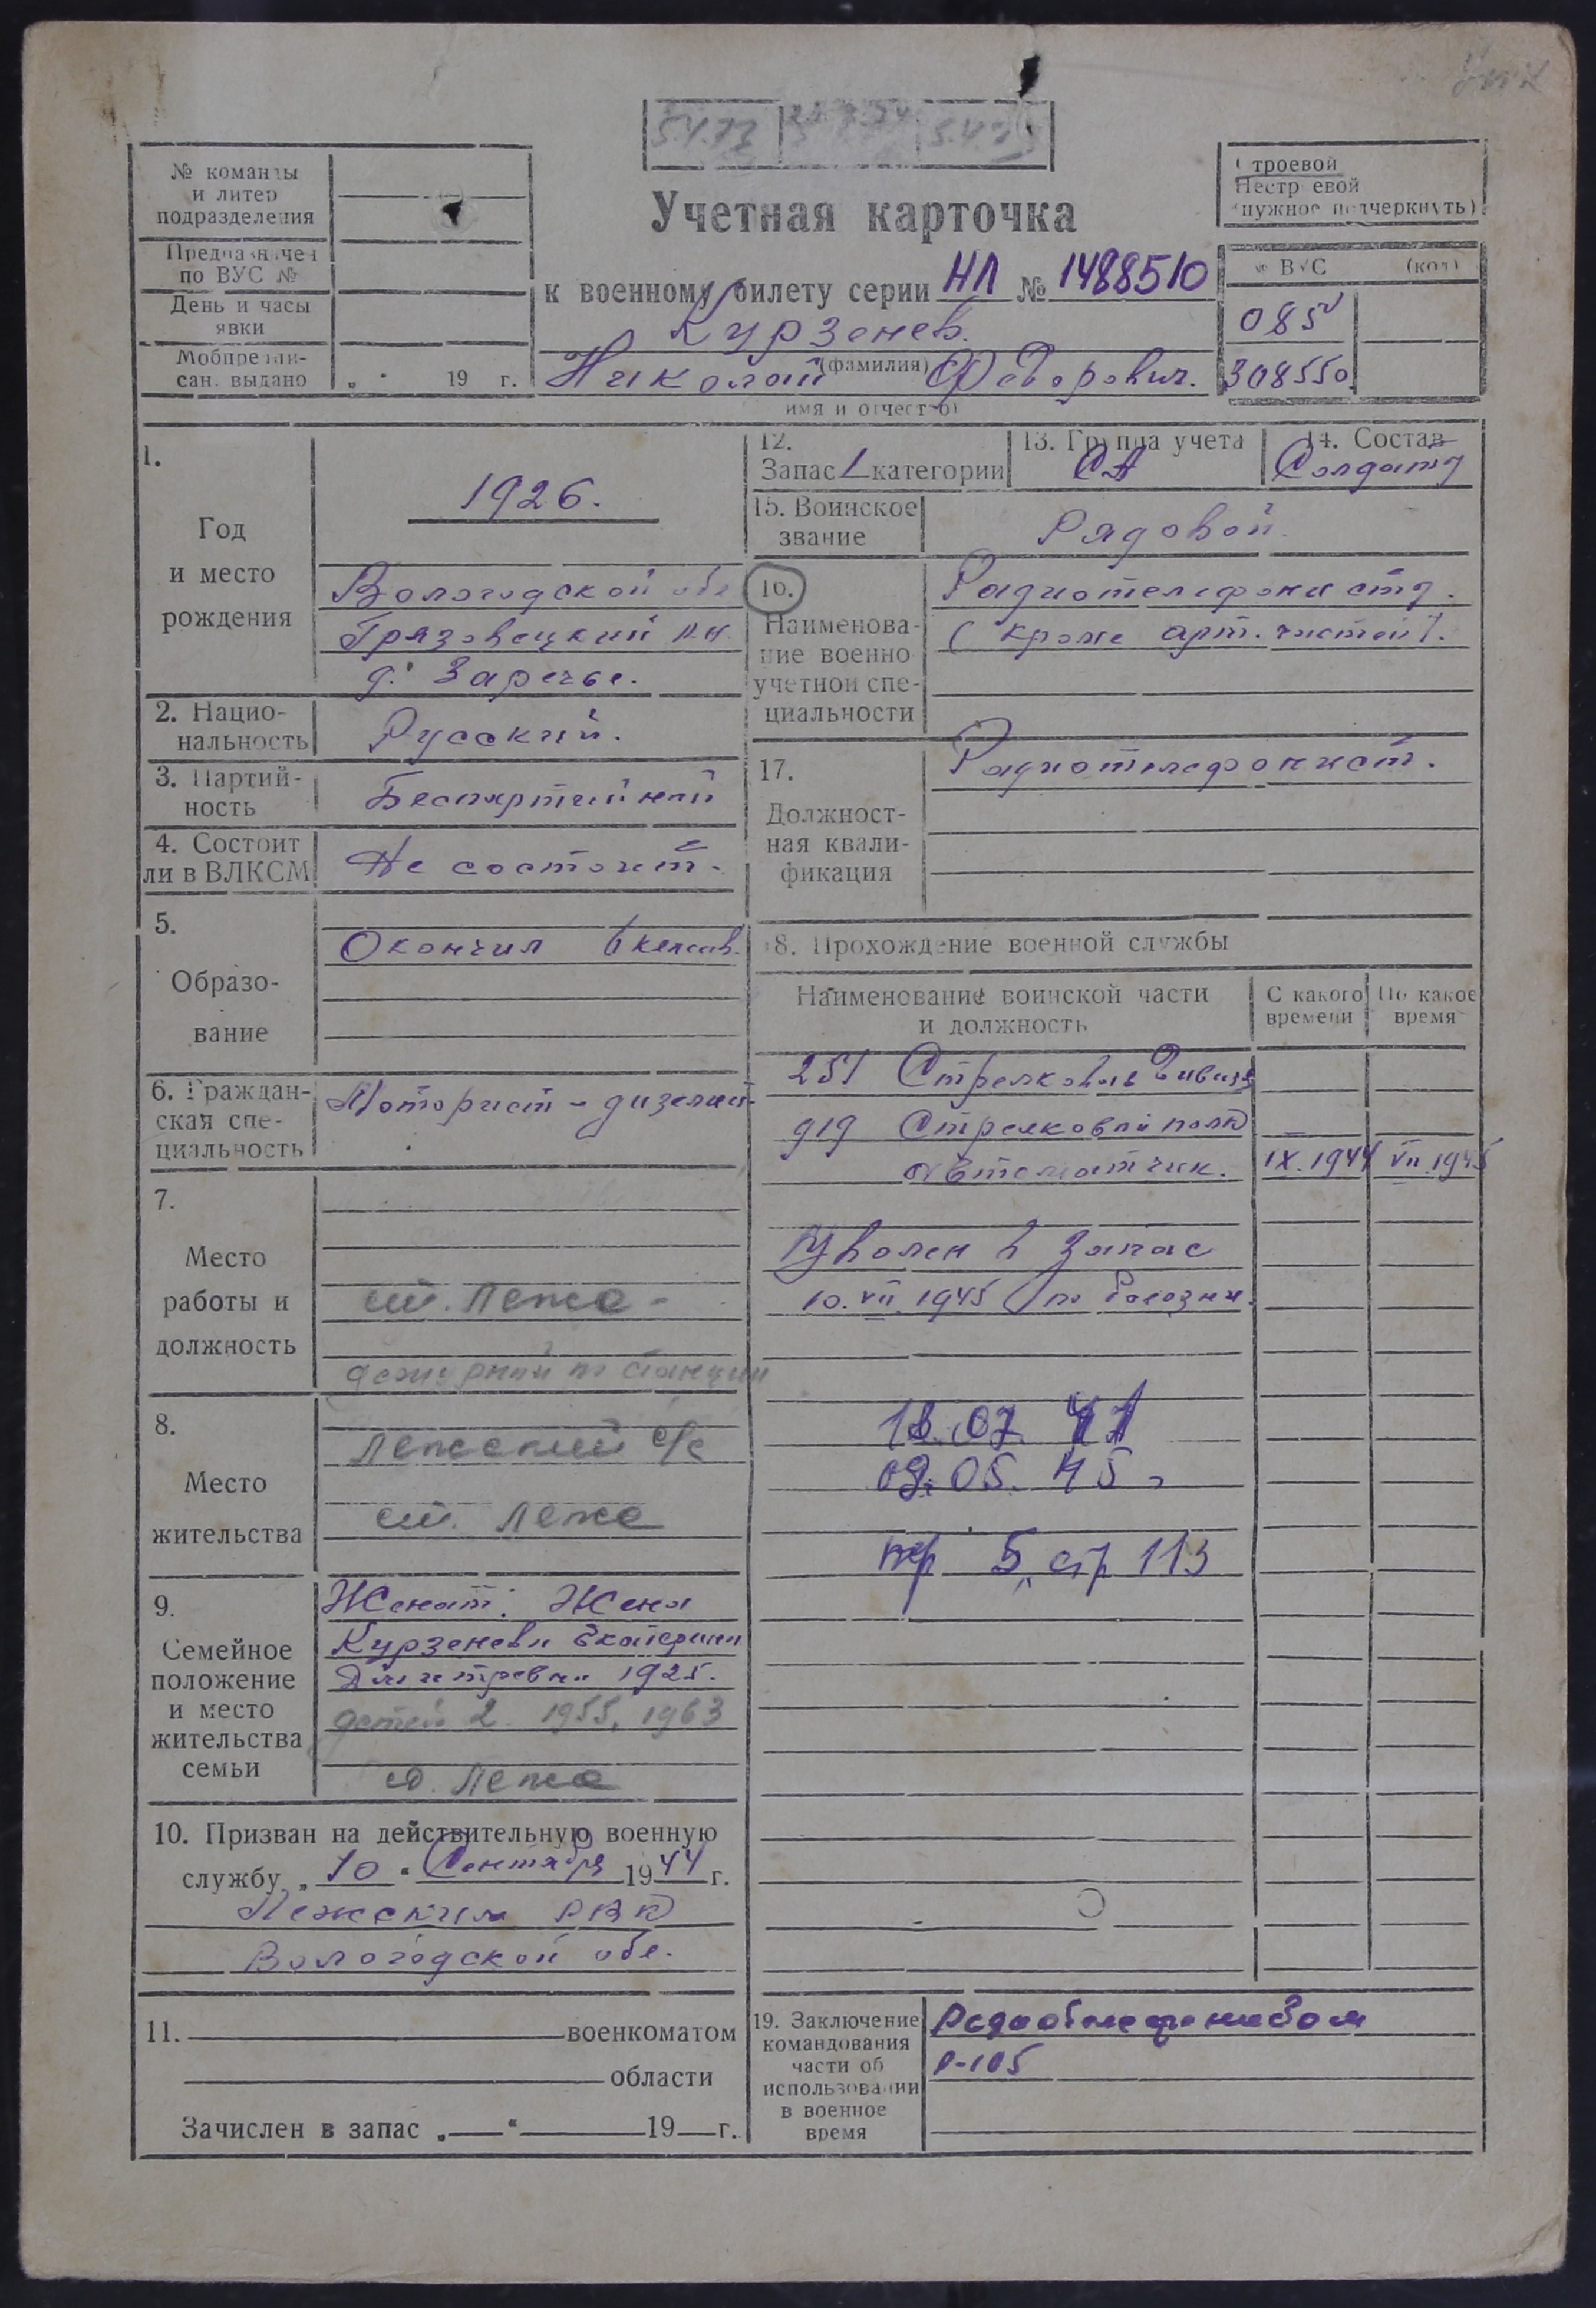 № команды
и литер
подразделения
Предназначен
по ВУС №
День и часы
явки
Мобпредпи-
сан. выдано „ “ 19 г.
Учетная карточка
к военному билету серии НЛ № 1488510
Курзенев.
(фамилия)
Николай Федорович.
имя и отчество)
Строевой
Нестроевой
(нужное подчеркнуть)
№ ВУС (код)
085
308550
1.
Год
и место
рождения
1926.
Вологодской обл
Грязовецкий р.н.
д. Заречье.
2. Нацио-
нальность
Русский.
3. Партий-
ность
Беспартийный
4. Состоит
ли в ВЛКСМ
Не состоит.
5.
Образо-
вание
Окончил 6 классов.
6. Граждан-
ская спе-
циальность
Моторист - дизелист.
7.
Место
работы и
должность
ст. Лежа -
дежурный по станции
8.
Место
жительства
Лежский с/с
ст. Лежа
9.
Семейное
положение
и место
жительства
семьи
Женат. Жена
Курзенева Екатерина
Дмитревна 1925.
детей 2. 1955, 1963
ст. Лежа
10. Призван на действительную военную
службу „ 10 “ Сентября 1944 г.
Лежским РВК
Вологодской обл.
11. военкоматом
области
Зачислен в запас „ “ 19 г.
12.
Запас 1 категории
13. Группа учета
СА
14. Состав
Солдаты
15. Воинское
звание
Рядовой.
16.
Наименова-
ние военно
учетной спе-
циальности
Радиотелефонисты.
(кроме арт. частей).
17.
Должност-
ная квали-
фикация
Радиотелефонист.
18. Прохождение военной службы
Наименование воинской части
и должность
С какого
времени
По какое
время
251 Стрелковая Дивизя
919 Стрелковый полк
автоматчик. IX.1944 VII.1945
Уволен в запас
10.VII.1945 по болезни.
09.05.45
стр 113
19. Заключение
командования
части об
использовании
в военное
время
Радиотелефонистом
Р-105